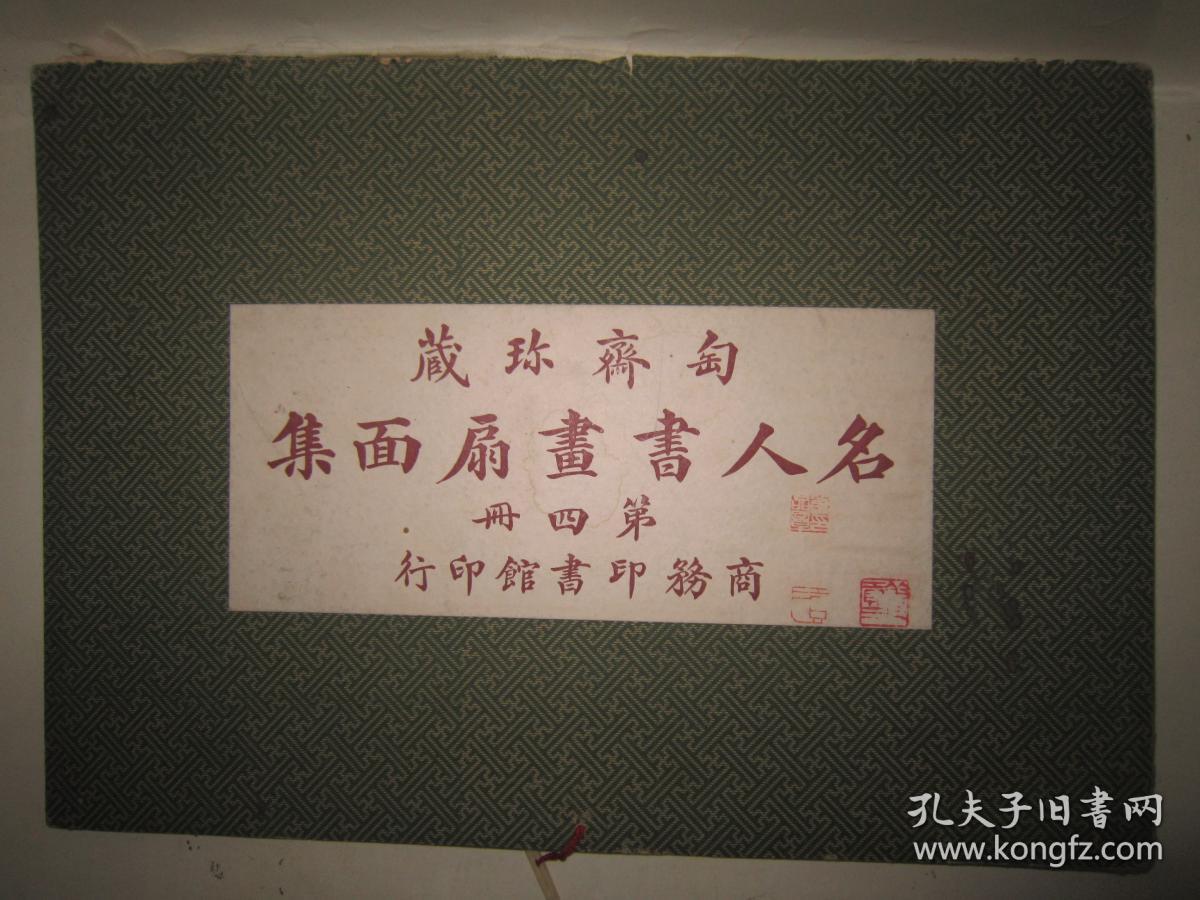 匋齋珎蔵
名人書畫扇面集
第四冊
商務印書館印行
孔夫子旧书网
www.kongfz.com